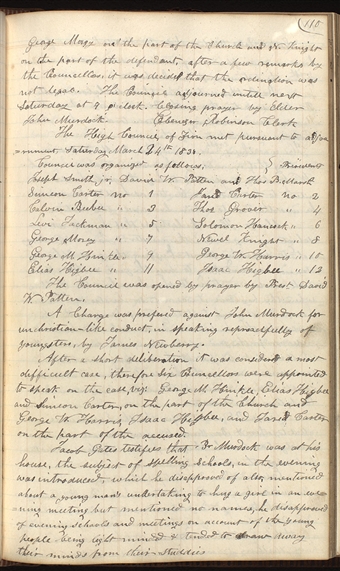 110
George Morey on the part of the Church and N. Knight
on the part of the defendant, after a few remarks by
the Councellors, it was decided that the ordination was
not legal. The Council adjourned until next
Saturday at 9 o'clock. Closing prayer by Elder
John Murdock. Ebenezer Robinson Clerk
The High Council of Zion met pursuant to adjo-
urnment Saturday March 24th 1838.
Council was organized as follows.
Joseph Smith, jr, David W. Patten and Thos B. Marsh
Simeon Carter no 1 Jared Carter no 2
Calvin Beebee " 3 Thos. Grover " 4
Levi Jackman " 5 Solomon Hancock " 6
George Morey " 7 Newel Knight " 8
George M. Hinkle " 9 George W. Harris " 10
Elias Higbee " 11 Isaac Higbee " 12
The Council was opened by prayer by Prest David
W. Patten.
A Charge was prefered against John Murdock for
unchristian-like conduct, in speaking reproachfully of
youngsters, by James Newberry.
After a short deliberation it was considerd a most
difficult case, therefore six Councellors were appointed
to speak on the case, viz: George M. Hinkle, Elias Higbee
and Simeon Carter, on the part of the Church and
George W. Harris, Isaac Higbee, and Jared Carter
on the part of the accused.
Jacob Gates testifies that Br Murdock was at his
house, the subject of spelling schools, in the evening
was introduced, which he disapproved of also, mentioned
about a young man's undertaking to hug a girl in an eve-
ning meeting but mentioned no names, he disapproved
of evening schools and meetings on account of the young
people being light minded & tended to draw away
their minds from their studdies